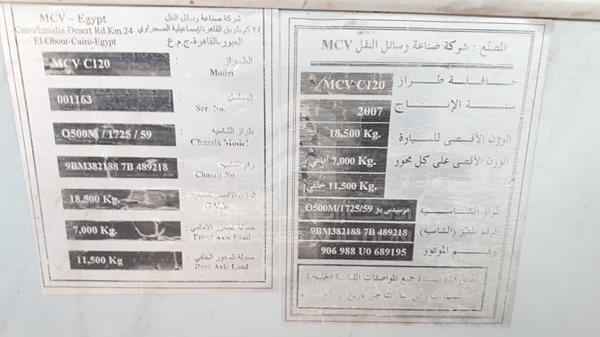 MCV – Egypt
Cairo/Ismalia Desert Rd.Km.24
El-Obour-Cairo-Egypt
شركة صناعة وسائل النقل
٢٤ كم طريق القاهرة/إسماعيلية الصحراوي
العبور-القاهرة-ج.م.ع.
MCV C120
الطراز :
Model
001163
المسلسل :
Ser. No.
O500M / 1725 / 59
طراز الشاسيه :
Chassis Model
9BM382188 7B 489218
رقم الشاسيه :
Chassis No
18,500 Kg.
الوزن الأقصى
7,000 Kg.
حمولة المحور الأمامي :
Front Axle Load
11,500 Kg
حمولة المحور الخلفي :
Rear Axle Load
المصنع : شركة صناعة وسائل النقل MCV
حافلة طراز MCV C120
سنة الإنتاج 2007
الوزن الأقصى للسيارة 18,500 Kg.
الوزن الأقصى على كل محور 7,000 Kg. أمامي
11,500 Kg. خلفي
طراز الشاسيه مرسيدس بنز O500M/1725/59
الرقم المميز (الشاسيه) 9BM382188 7B 489218
رقم الموتور 906 988 U0 689195
جميع المواصفات القياسية